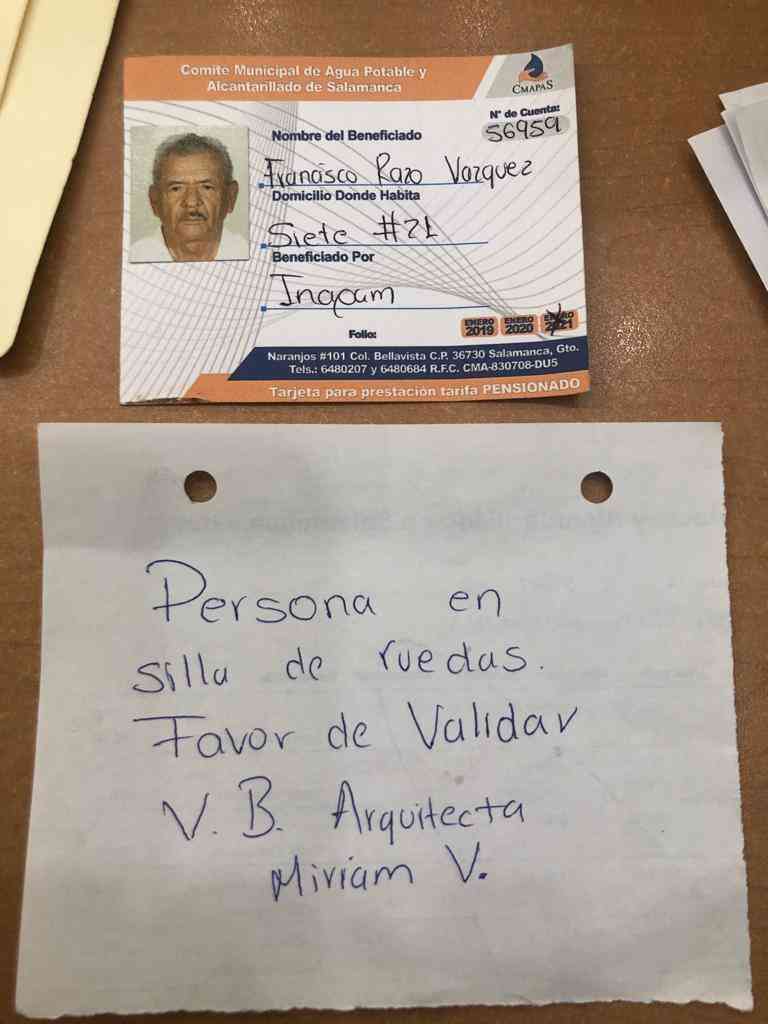 Comite Municipal de Agua Potable y
Alcantarillado de Salamanca
CMAPAS
N° de Cuenta:
56959
Nombre del Beneficiado
Francisco Razo Vazquez
Domicilio Donde Habita
Siete #21
Beneficiado Por
Inapam
Folio:
ENERO 2019 ENERO 2020 ENERO 2021
Naranjos #101 Col. Bellavista C.P. 36730 Salamanca, Gto.
Tels.: 6480207 y 6480684 R.F.C. CMA-830708-DU5
Tarjeta para prestación tarifa PENSIONADO
Persona en
silla de ruedas.
Favor de Validar
V. B. Arquitecta
Miriam V.